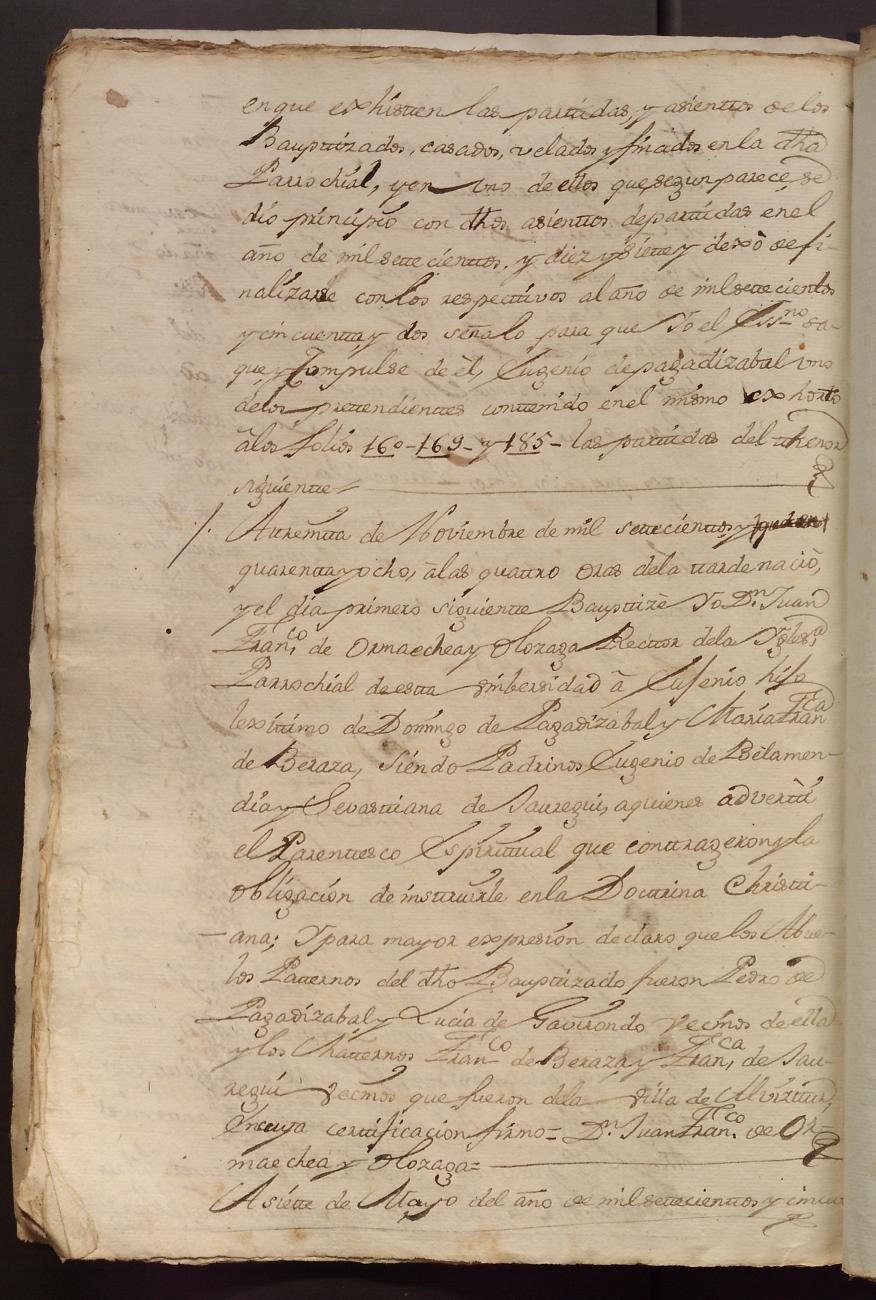 en que exhisten las partidas, y asientos de los
Bauptizados, casados, velados y finados en la dha
Parrochial, y en uno de ellos que segun parece, se
dio principio con dhos asientos de partidas en el
año de mil setecientos, y diez y siete y dexò de fi-
nalizarse con los respectivos al año de mil setecientos
y cincuenta, y dos señalo para que Yo el Essno sa-
que, y Compulse de èl, Eugenio de pagadizabal uno
de los prettendientes conttenido en el mismo exhorto
â los folios 160-169- y 185- las partidas del thenor
siguiente
/. A treinta de Noviembre de mil settecienttos, y
quarenta y ocho, â las quattro oras de la ttarde naciò,
y el dia primero siguiente Bauptizè Yo Dn Juan
Franco de Ormaechea y Olozaga Rector de la Yglesa
Parrochial de esta Vnibersidad â Eusenio hijo
lexitimo de Domingo de Pagadizabal y Maria Franca
de Beraza, siendo Padrinos Eugenio de Belamen-
dia y Sevasttiana de Jauregui, a quienes advertì
el Parenttesco Espirittual que conttrageron y la
obligación de instruirle en la Docttrina Christti-
ana; Y para mayor expresión declaro que los Abue-
los Patternos del dho Bauptizado fueron Pedro de
Pagadizabal y Lucia de Gavirondo vecinos de ella
y los Matternos Franco de Beraza, y Franca de Jau-
regui vecinos que fueron de la villa de Alvisttur,
En cuya certificacion firmo= Dn Juan Franco de Or-
maechea y Olozaga=
A siette de Mayo del año de mil settecienttos y cincu